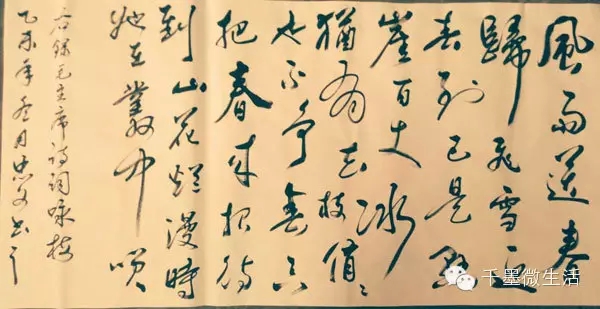 風雨送春
歸飛雪迎
春到已是懸
崖百丈冰
猶有花枝俏々
也不争春只
把春来报待
到山花爛漫時
她在叢中唉
右録毛主席诗词咏梅
乙未年冬月忠文书
千墨微生活